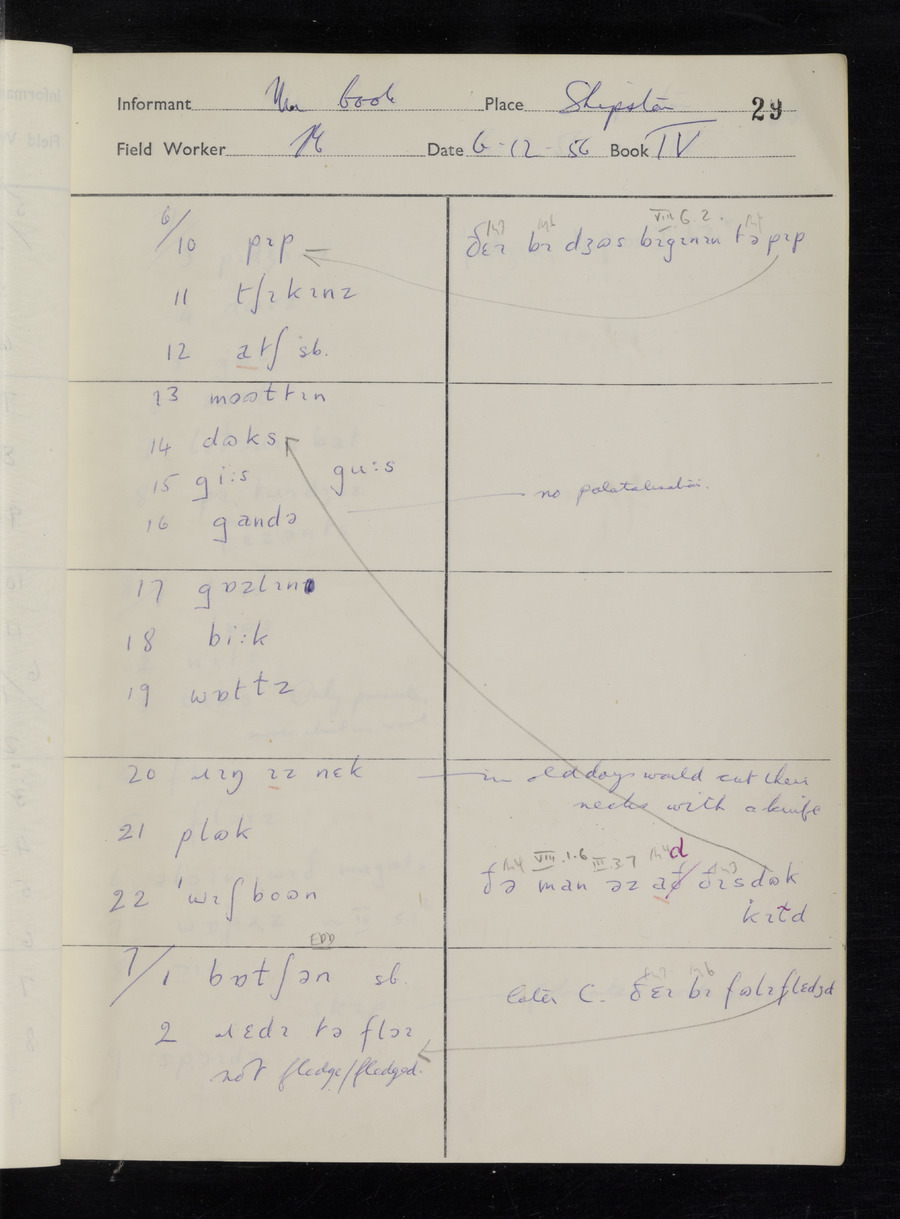 Informant Place Shipston 29
Field Worker Date 6-12-56 Book IV
6/10 pɪp
11 tʃɪkɪnz
12 atʃ sb.
13 mɷʊltɪn
14 dɷks
15 gi:s gu:s
16 gandə
17 gɒzlɪn
18 bi:k
19 wɒttz
20 ɹɪŋ ɪz nɛk
21 plɷk
22 'wɪʃboʊn
EDD
7/1 bɷtʃən sb.
2 ɹɛdɪ tə flɔɪ
not fledge/fledged.
VIII 6.2.
ðɛɪ bɪ dʒɷs bɪgɪnɪn tə pɪp
no palatalisation.
in old days would cut their
necks with a knife
VIII.1.6 III.3.7 d
ðə man əz ad ðɪs dɷk
kɪtd
later C. ðɛɪ bɪ fɷlɪ flɛdʒd